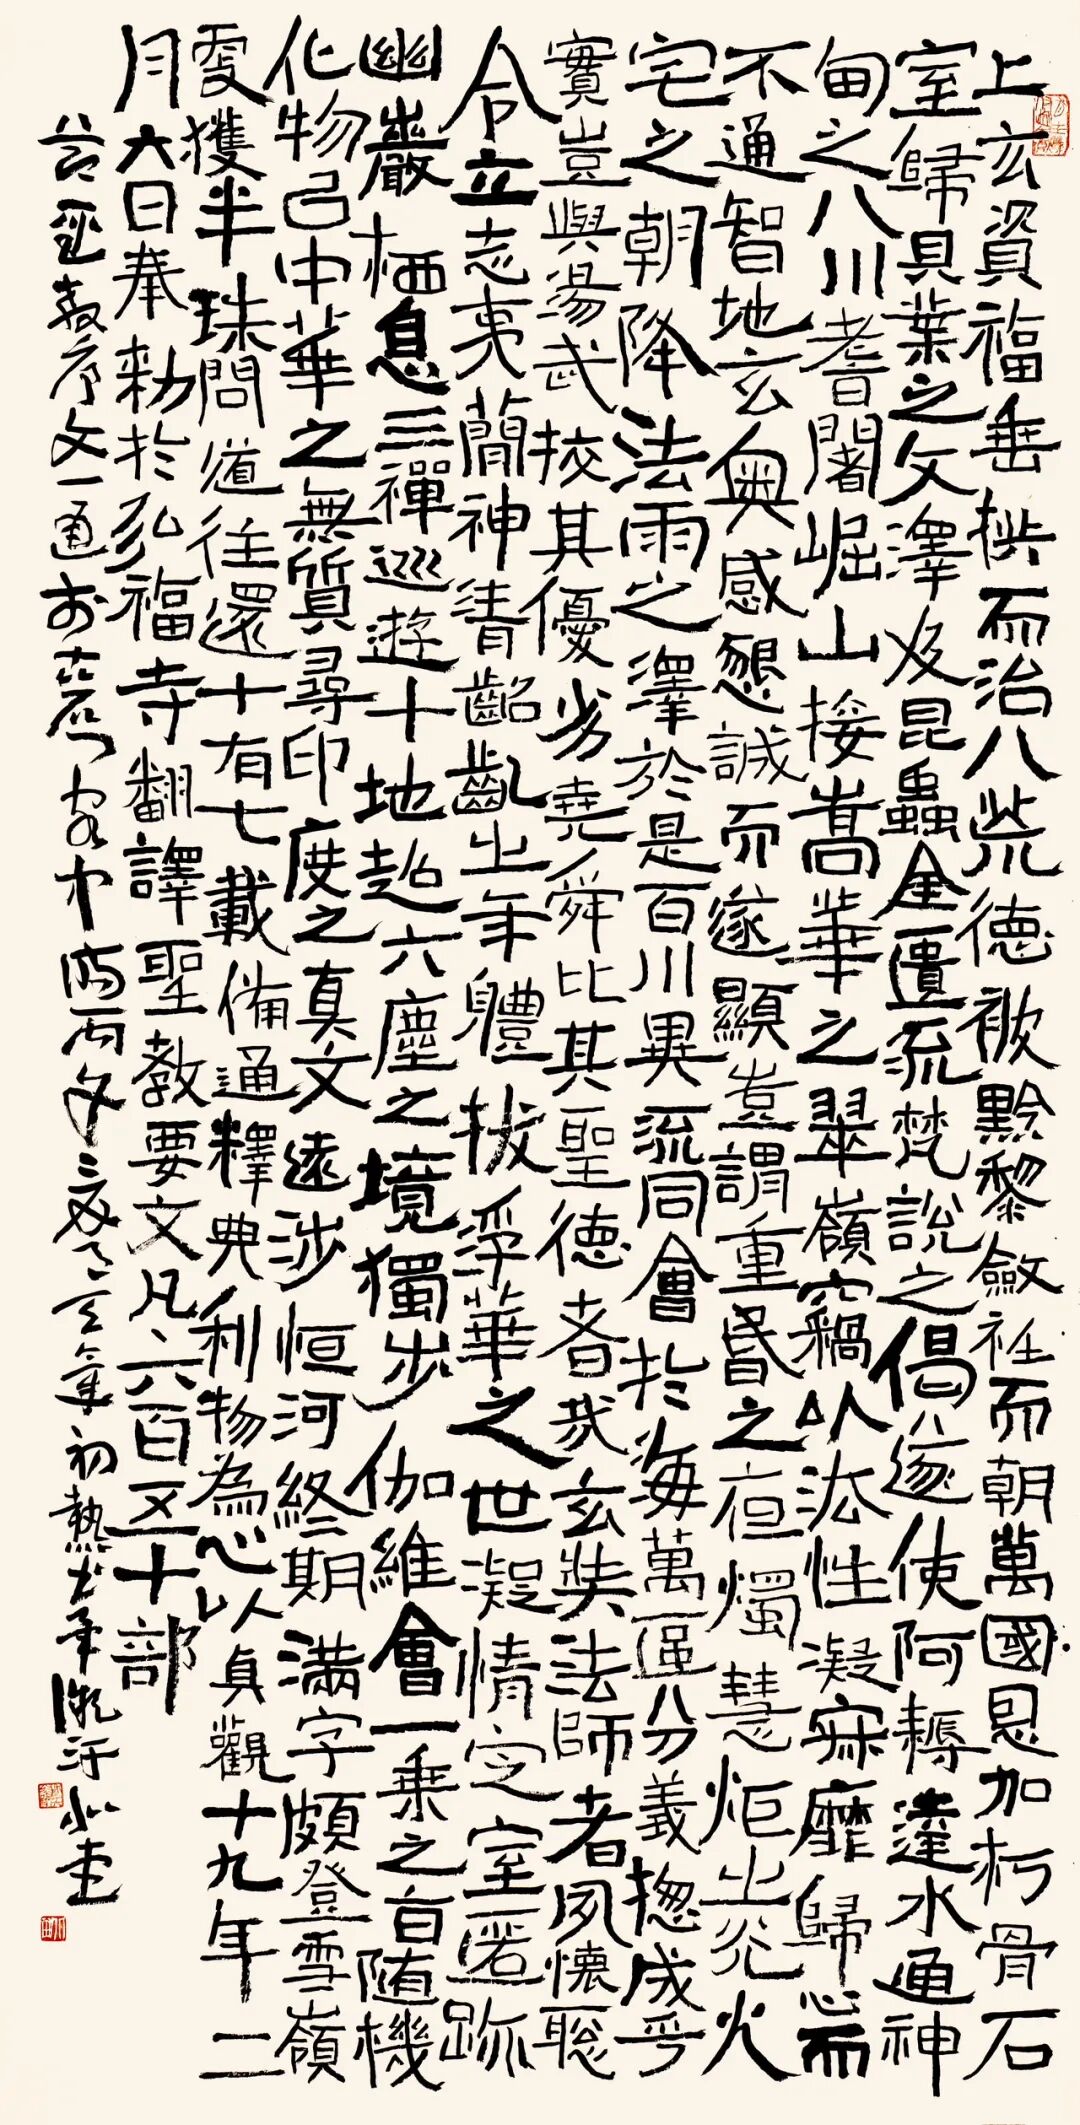 上玄資福垂拱而治八荒德被黔黎斂衽而朝萬國恩加朽骨石
室歸貝葉之文澤及昆蟲金匱流梵說之偈遂使阿耨達水通神
甸之八川耆闍崛山接嵩華之翠嶺竊以法性凝寂靡歸心而
不通智地玄奧感懇誠而遂顯豈謂重昏之夜燭慧炬之光火
宅之朝降法雨之澤於是百川異流同會於海萬區分義揔成乎
實豈與湯武挍其優劣堯舜比其聖德者哉玄奘法師者夙懷聰
令立志夷簡神清齠齔之年體拔浮華之世凝情定室匿跡
幽巖栖息三禪巡遊十地超六塵之境獨步伽維會一乘之旨隨機
化物以中華之無質尋印度之真文遠涉恒河終期滿字頻登雪嶺
更獲半珠問道往還十有七載備通釋典利物為心以貞觀十九年二
月六日奉勅於弘福寺翻譯聖教要文凡六百五十部
節聖教序文一通於